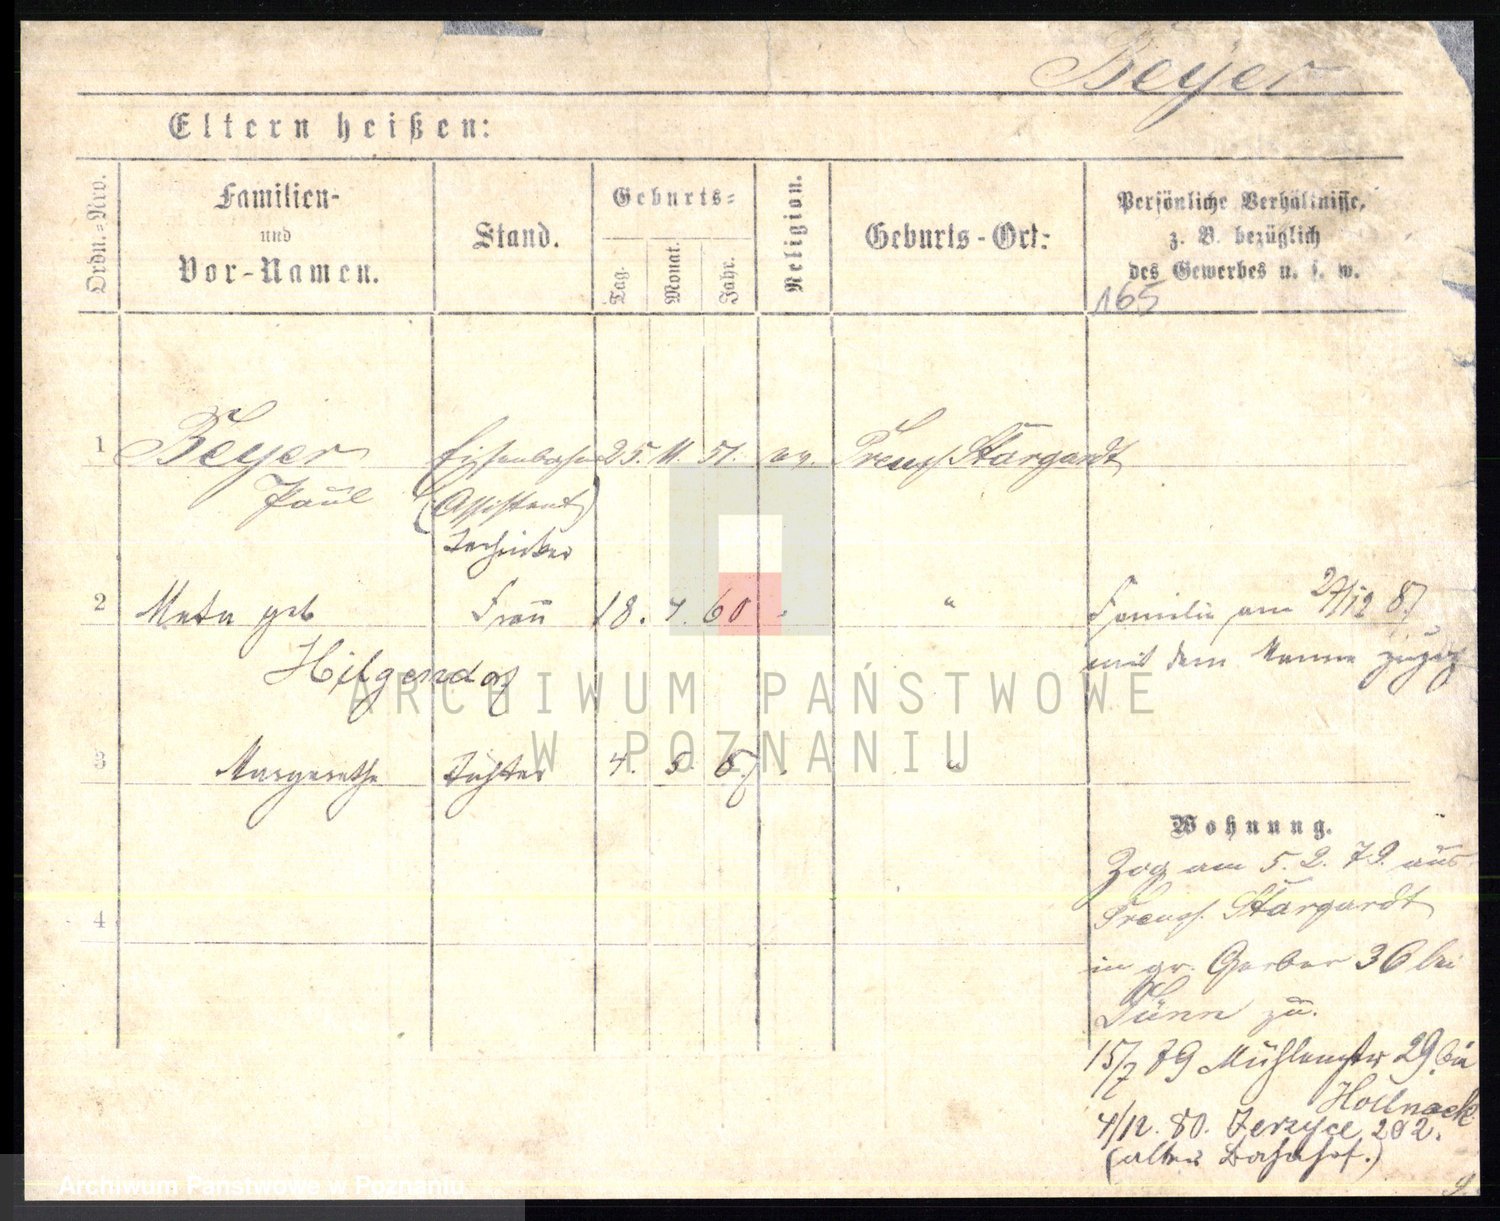 Beyer
Eltern heißen:
Ordn.-Nro.
Familien-
und
Vor-Namen.
Stand.
Geburts-
Tag.
Monat.
Jahr.
Religion.
Geburts-Ort:
Persönliche Verhältnisse,
z. B. bezüglich
des Gewerbes u. s. w.
165
1 Beyer Eisenbahn 25. 11. 51. ev. Preuß. Stargardt
Paul (Assistent)
Techniker
2 Meta geb Frau 18. 4. 60 " Familie am 27/12 87
Hilgendorf mit dem Manne zugez
3 Margarethe Tochter 4. 5. 87 "
Wohnung.
Zog am 5. 2. 79. aus
4 Preuß. Stargardt
in gr. Gerber 36 bei
Tünn zu.
15/7 79 Mühlenstr 29 bei
Hollnack
4/12. 80. Jerzyce 202.
(alter Bahnhof.)
ARCHIWUM PAŃSTWOWE
W POZNANIU
Archiwum Państwowe w Poznaniu